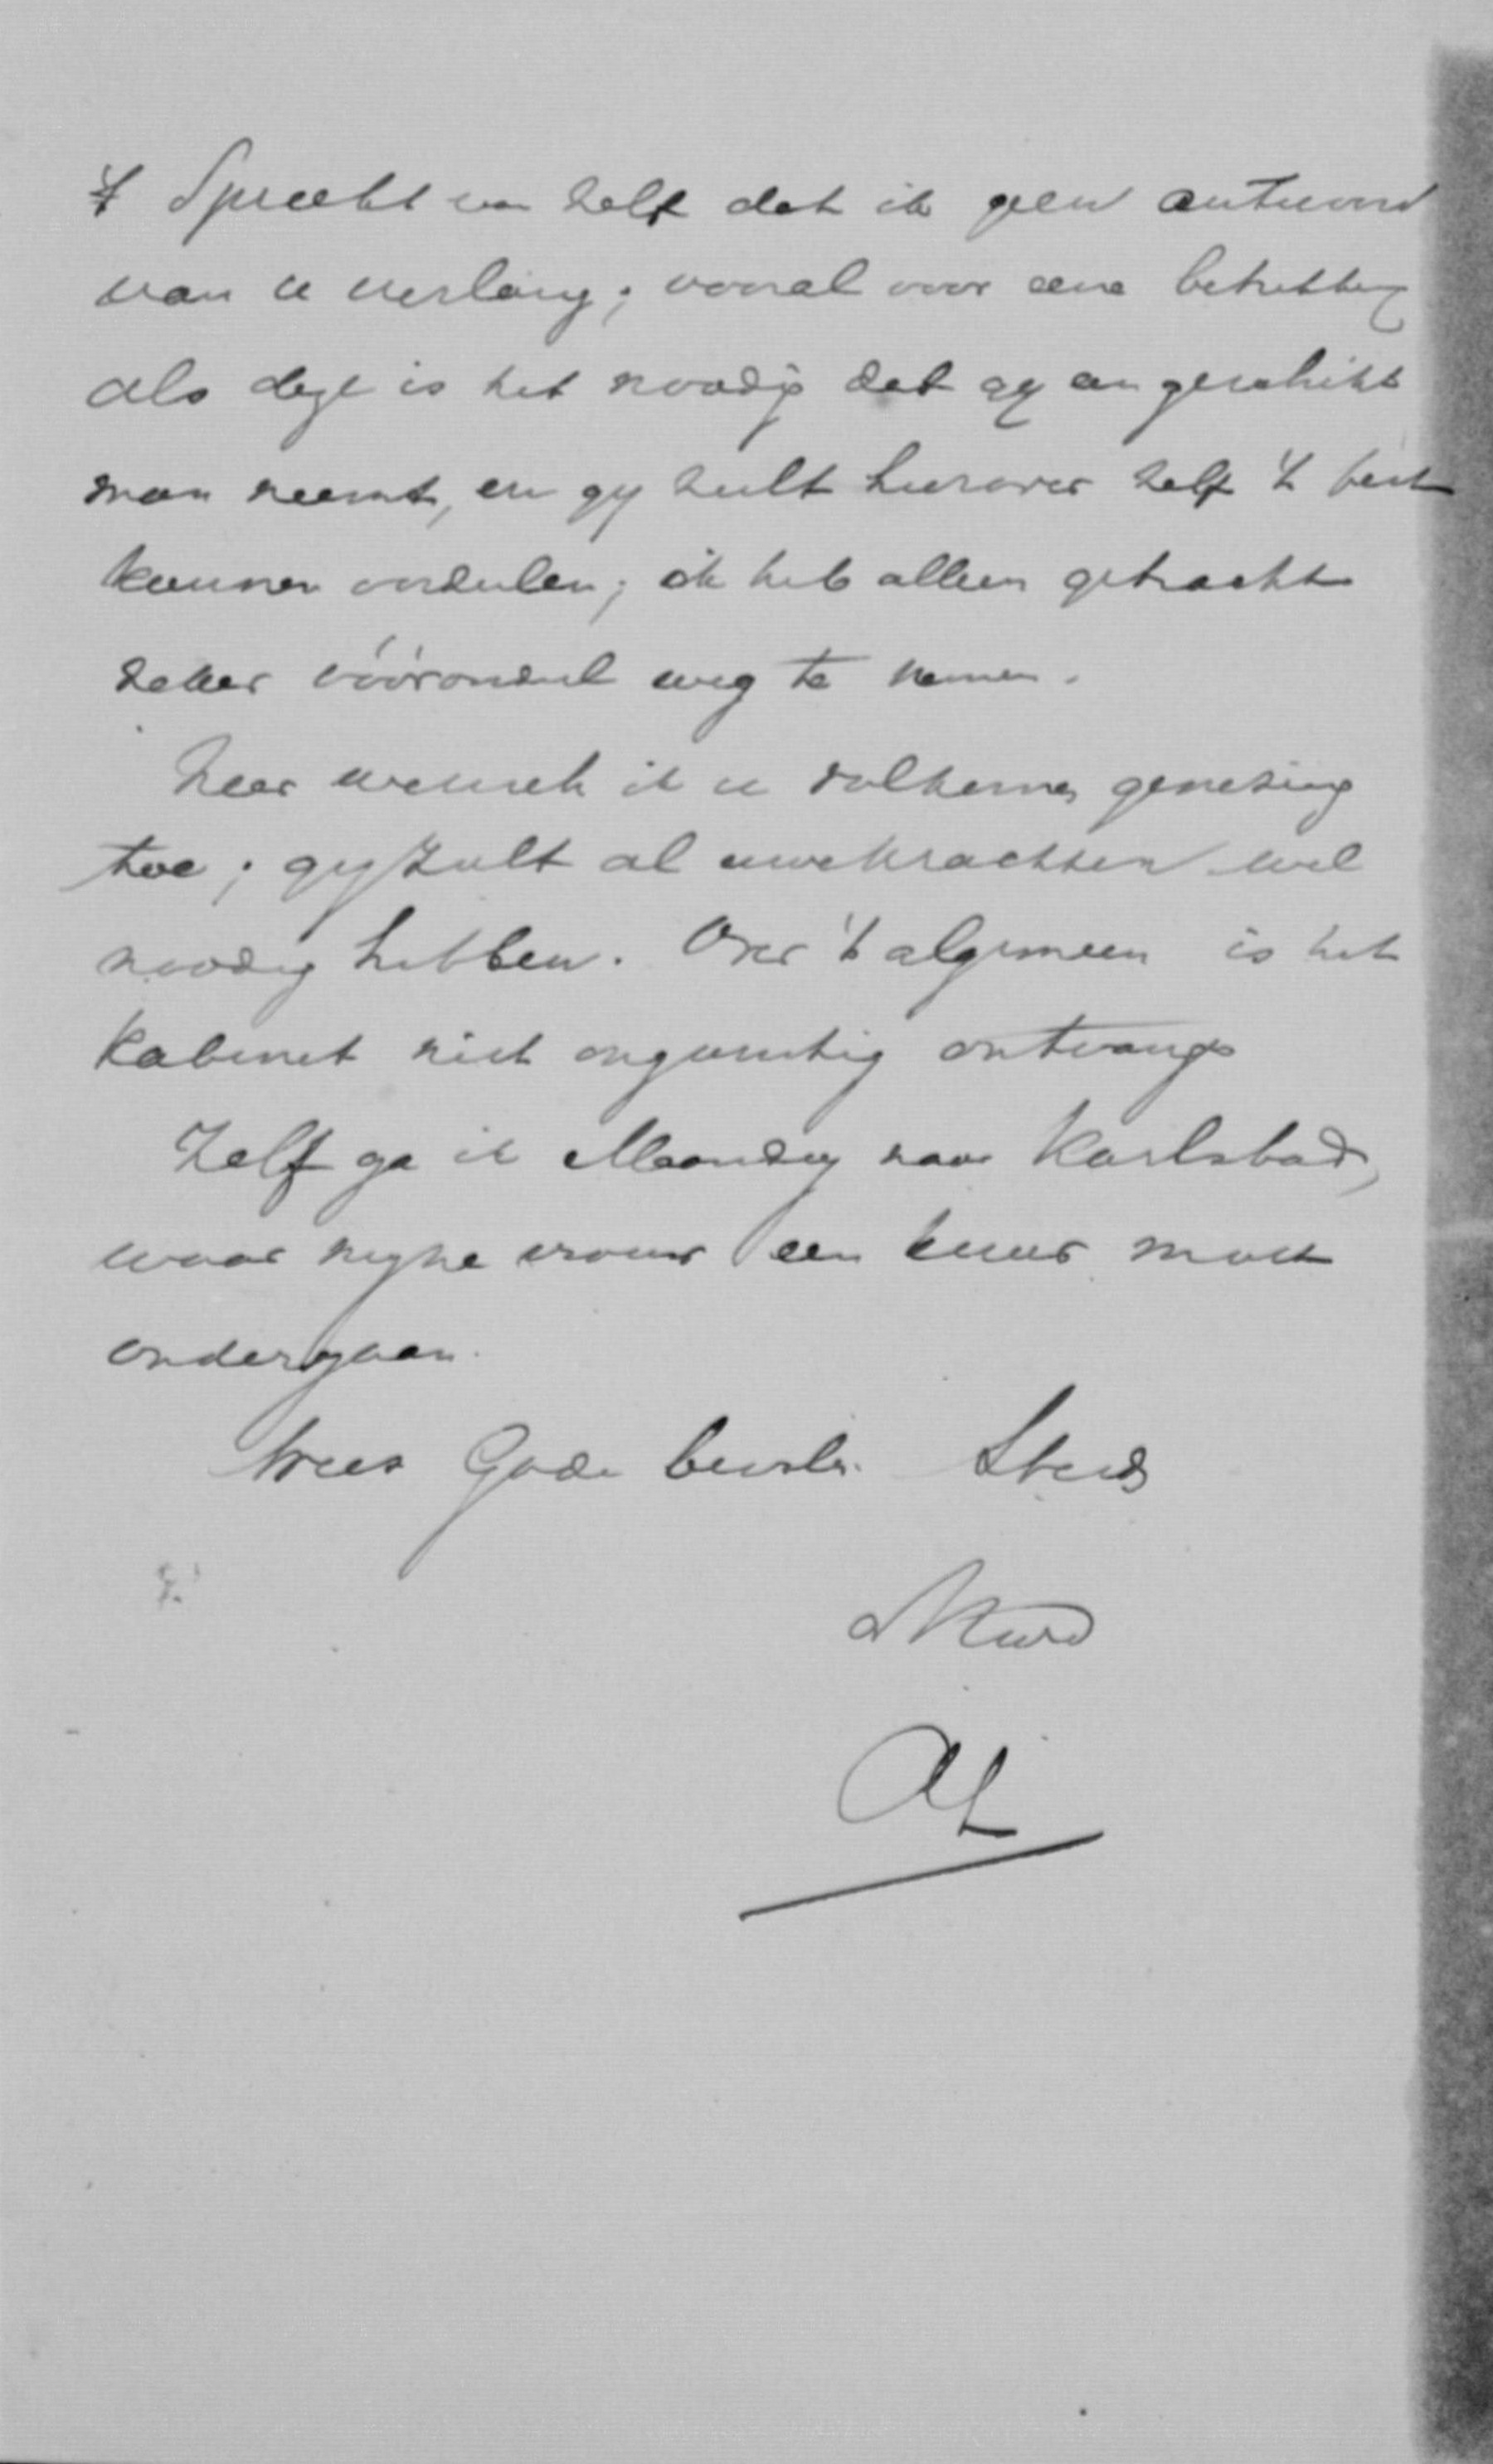 't Spreekt van zelf dat ik geen antwoord
van u verlang; vooral voor eene betrekking
als deze is het noodig dat gy een geschikt
man neemt, en gy zult hierover zelf 't best
kunnen oordeelen; ik heb alleen getracht
zeker vóóroordeel weg te nemen.
Zeer wensch ik u volkomen genezing
toe; gy zult al uwe krachten wel
noodig hebben. Over 't algemeen is het
Kabinet niet ongunstig ontvangen
Zelf ga ik Maandag naar Karlsbad,
waar myne vrouw een kuur moet
ondergaan.
Wees Gode bevolen. Steeds
AL